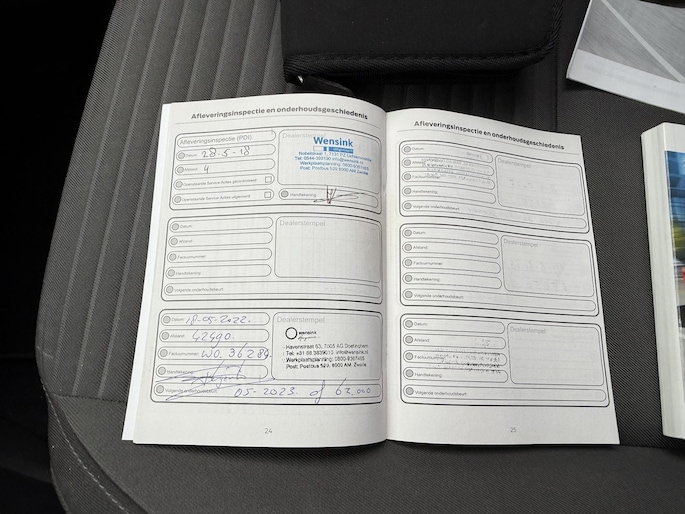 Afleveringsinspectie en onderhoudsgeschiedenis
Afleveringsinspectie (PDI)
Datum: 28-5-18
Afstand: 4
Handtekening:
Dealerstempel
Wensink
Post: Postbus 529 8000 AM Zwolle
Datum:
Afstand:
Factuurnummer:
Handtekening:
Volgende onderhoudsbeurt:
Dealerstempel
Datum: 18.05.2022.
Afstand: 42490.
Factuurnummer: WO. 36284
Handtekening:
Volgende onderhoudsbeurt: 05-2023. of 62.000
Dealerstempel
wensink
Havenstraat 83, 7005 AG Doetinchem
Tel: +31 88 3839010 info@wensink.nl
Werkplaatsplanning: 0800-9367465
Post: Postbus 529, 8000 AM Zwolle
24
Afleveringsinspectie en onderhoudsgeschiedenis
Datum:
Afstand:
Handtekening:
Volgende onderhoudsbeurt:
Dealerstempel
Datum:
Afstand:
Factuurnummer:
Handtekening:
Volgende onderhoudsbeurt:
Dealerstempel
Datum:
Afstand:
Factuurnummer:
Handtekening:
Volgende onderhoudsbeurt:
Dealerstempel
25